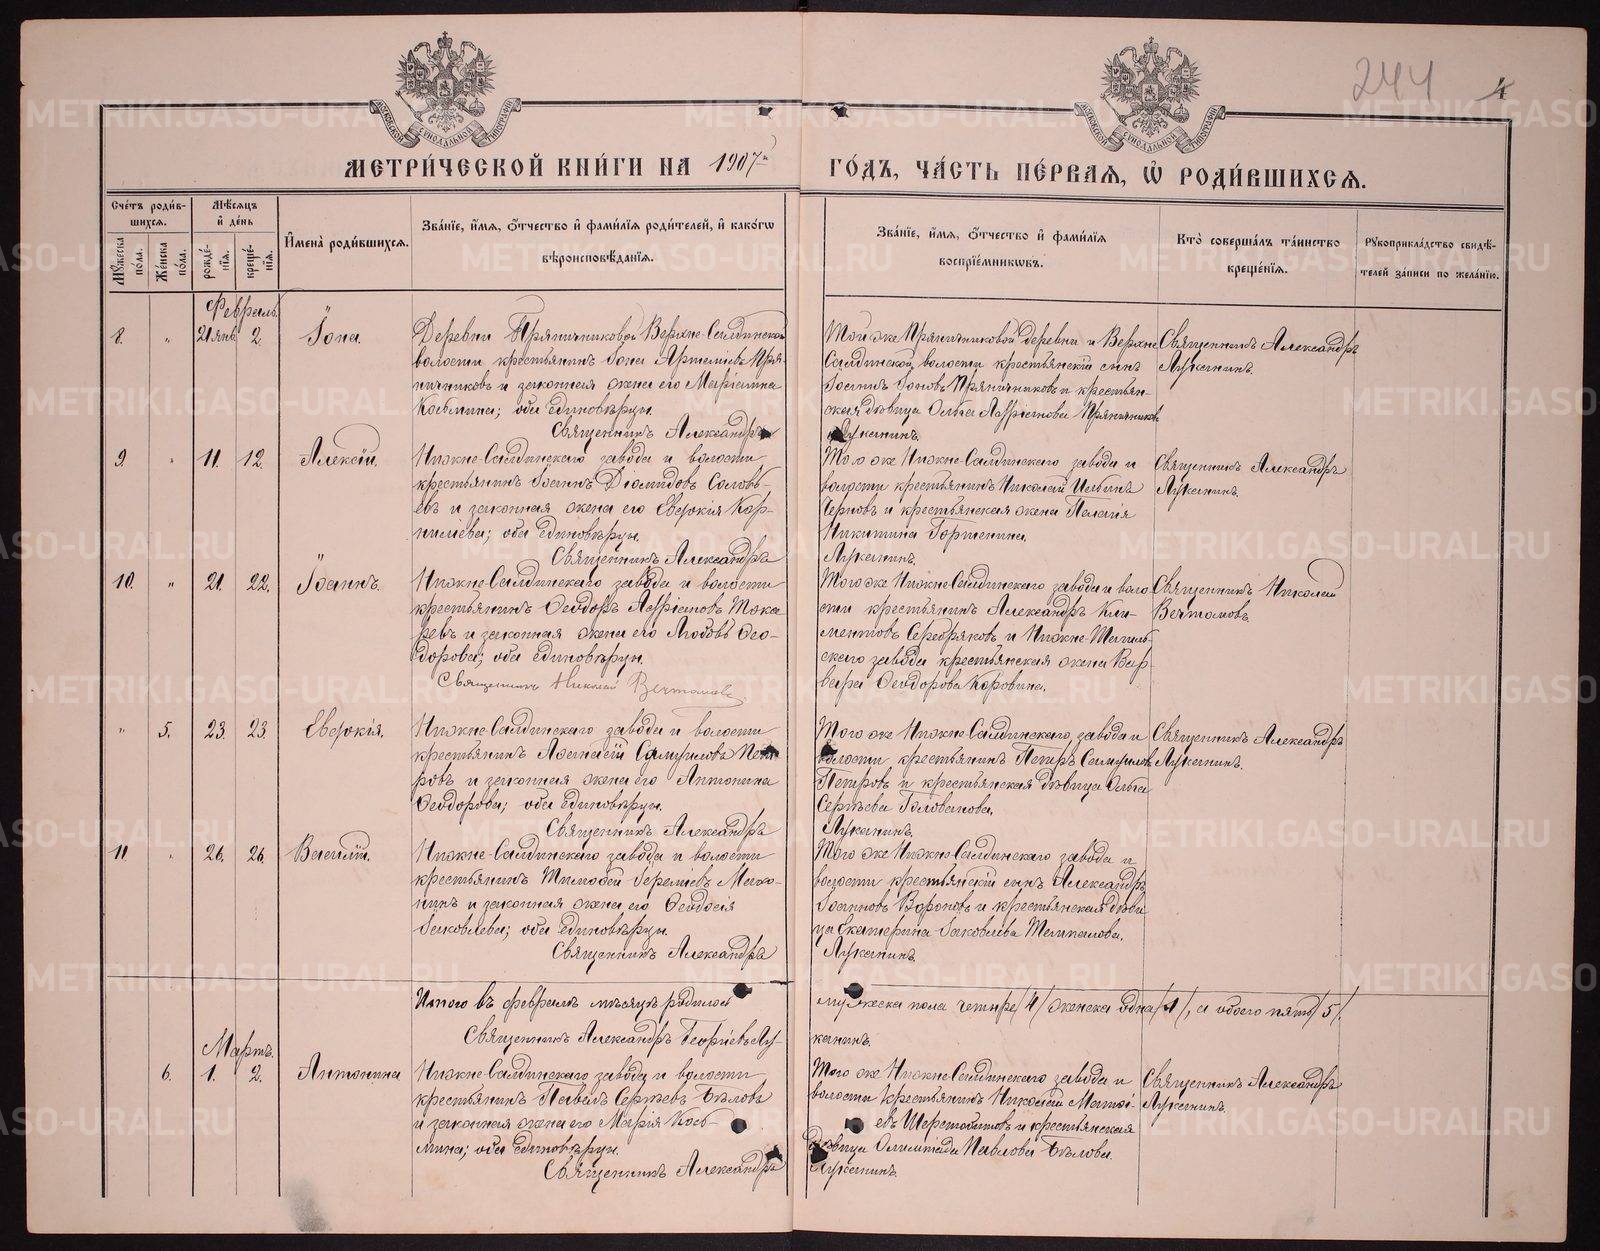 244
МОСКОВСКОЙ СѴНОДАЛЬНОЙ ТИПОГРАФІИ
МОСКОВСКОЙ СѴНОДАЛЬНОЙ ТИПОГРАФІИ
МЕТРИ́ЧЕСКОЙ КНИ́ГИ НА 1907-й ГО́ДЪ, ЧА́СТЬ ПЕ́РВАЯ, Ѽ РОДИ́ВШИХСЯ.
Сче́тъ роди́в-
шихся.
Мꙋ́жеска
по́ла.
Же́нска
по́ла.
Мѣ́сяцъ
и҆ де́нь
рожде́-
нїѧ.
креще́-
нїѧ.
И҆мена̀ роди́вшихся.
Зва́нїе, и҆́мя, ѻ҆́тчество и҆ фами́лїя роди́телей, и҆ како́гѡ
вѣроисповѣ́данїя.
Зва́нїе, и҆́мя, ѻ҆́тчество и҆ фами́лїя
воспрїе́мникѡвъ.
Кто̀ соверша́лъ та́инство
креще́нїя.
Рꙋкоприкла́дство свидѣ́-
телей за́писи по жела́нїю.
Февраль.
8. " 21 янв. 2. Іона.
Деревни Пряничниковой Верхне-Салдинской
волости крестьянинъ Іона Артеміевъ Пря-
ничниковъ и законная жена его Маріамна
Косьмина; оба единовѣрцы.
Священникъ Александръ
Той же Пряничниковой деревни и Верхне
Салдинской волости крестьянскій сынъ
Іосифъ Іоновъ Пряничниковъ и крестьян-
ская дѣвица Ольга Андріанова Пряничникова
Луканинъ.
Священникъ Александръ
Луканинъ.
9. " 11. 12. Алексій.
Нижне-Салдинскаго завода и волости
крестьянинъ Іоаннъ Діомидовъ Соловь-
евъ и законная жена его Евдокія Кор-
ниліева; оба единовѣрцы.
Священникъ Александръ
Того же Нижне-Салдинскаго завода и
волости крестьянинъ Николай Ильинъ
Черновъ и крестьянская жена Пелагія
Никитина Горшенина.
Луканинъ.
Священникъ Александръ
Луканинъ.
10. " 21. 22. Іоаннъ.
Нижне-Салдинскаго завода и волости
крестьянинъ Ѳеодоръ Андріановъ Тока-
ревъ и законная жена его Любовь Ѳео-
дорова; оба единовѣрцы.
Священникъ Николай Вечтомовъ.
Того же Нижне-Салдинскаго завода и воло-
сти крестьянинъ Александръ Кли-
ментовъ Серебряковъ и Нижне-Тагиль-
скаго завода крестьянская жена Вар-
вара Ѳеодорова Коровина.
Священникъ Николай
Вечтомовъ.
" 5. 23. 23. Евдокія.
Нижне-Салдинскаго завода и волости
крестьянинъ Аѳанасій Самуиловъ Пет-
ровъ и законная жена его Антонина
Ѳеодорова; оба единовѣрцы.
Священникъ Александръ
Того же Нижне-Салдинскаго завода и
волости крестьянинъ Петръ Самуиловъ
Петровъ и крестьянская дѣвица Ольга
Сергѣева Голованова.
Луканинъ.
Священникъ Александръ
Луканинъ.
11. " 26. 26. Василій.
Нижне-Салдинскаго завода и волости
крестьянинъ Тимоѳей Іереміевъ Мохо-
нинъ и законная жена его Ѳеодосія
Іаковлева; оба единовѣрцы.
Священникъ Александръ
Того же Нижне-Салдинскаго завода и
волости крестьянскій сынъ Александръ
Іоанновъ Вороновъ и крестьянская дѣви-
ца Екатерина Іаковлева
Луканинъ.
Итого въ февралѣ мѣсяцѣ родилось мужеска пола четыре /4/ женска одна /1/, а обоего пять /5/.
Священникъ Александръ Георгіевъ Лу-
канинъ.
Мартъ.
6. 1. 2. Антонина
Нижне-Салдинскаго завода и волости
крестьянинъ Павелъ Сергѣевъ Бѣловъ
и законная жена его Марія Кось-
мина; оба единовѣрцы.
Священникъ Александръ
Того же Нижне-Салдинскаго завода и
волости крестьянинъ Николай Матѳі-
евъ Шерстобитовъ и крестьянская
дѣвица Олимпіада Павлова Бѣлова.
Луканинъ.
Священникъ Александръ
Луканинъ.
METRIKI.GASO-URAL.RU